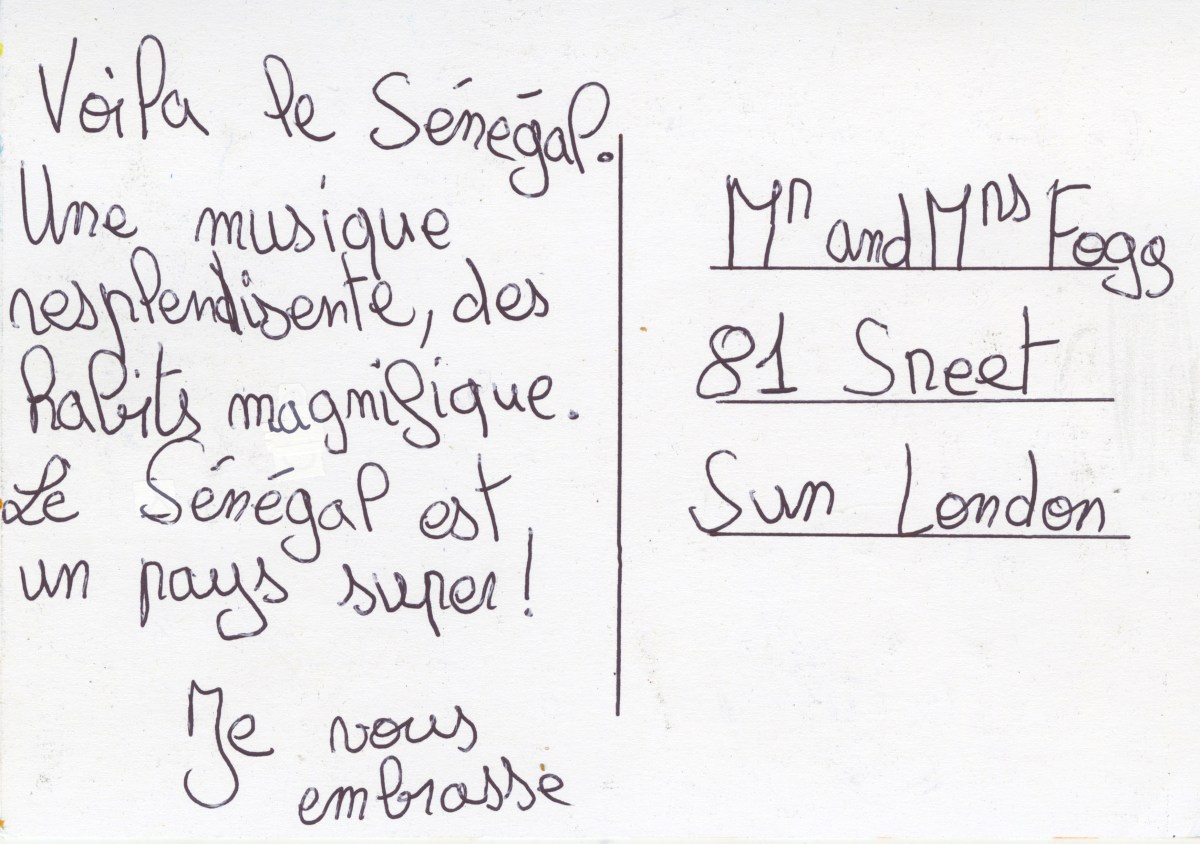 Voila le Sénégal.
Une musique
resplendisente, des
habits magnifique.
Le Sénégal est
un pays super!
Je vous
embrasse
Mr and Mrs Fogg
81 Sreet
Sun London